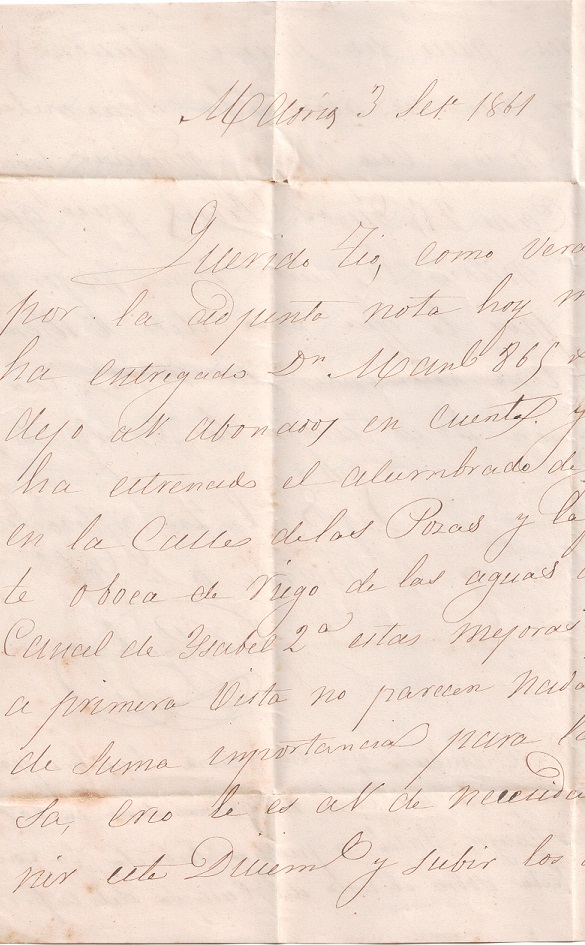 Madrid 3 Set.e 1861
Querido Tio, como verá
por la adjunta nota hoy m
ha entregado Dn Manl 865
dejo a V. abonados en cuenta. y
ha estrenado el alumbrado de
en la Calle de las Pozas y la
te o boca de riego de las aguas
Canal de Ysabel 2a estas mejoras
a primera vista no parecen nada
de suma importancia para la
sa, creo le es a V. de necesida
nir este Diciembe y subir los